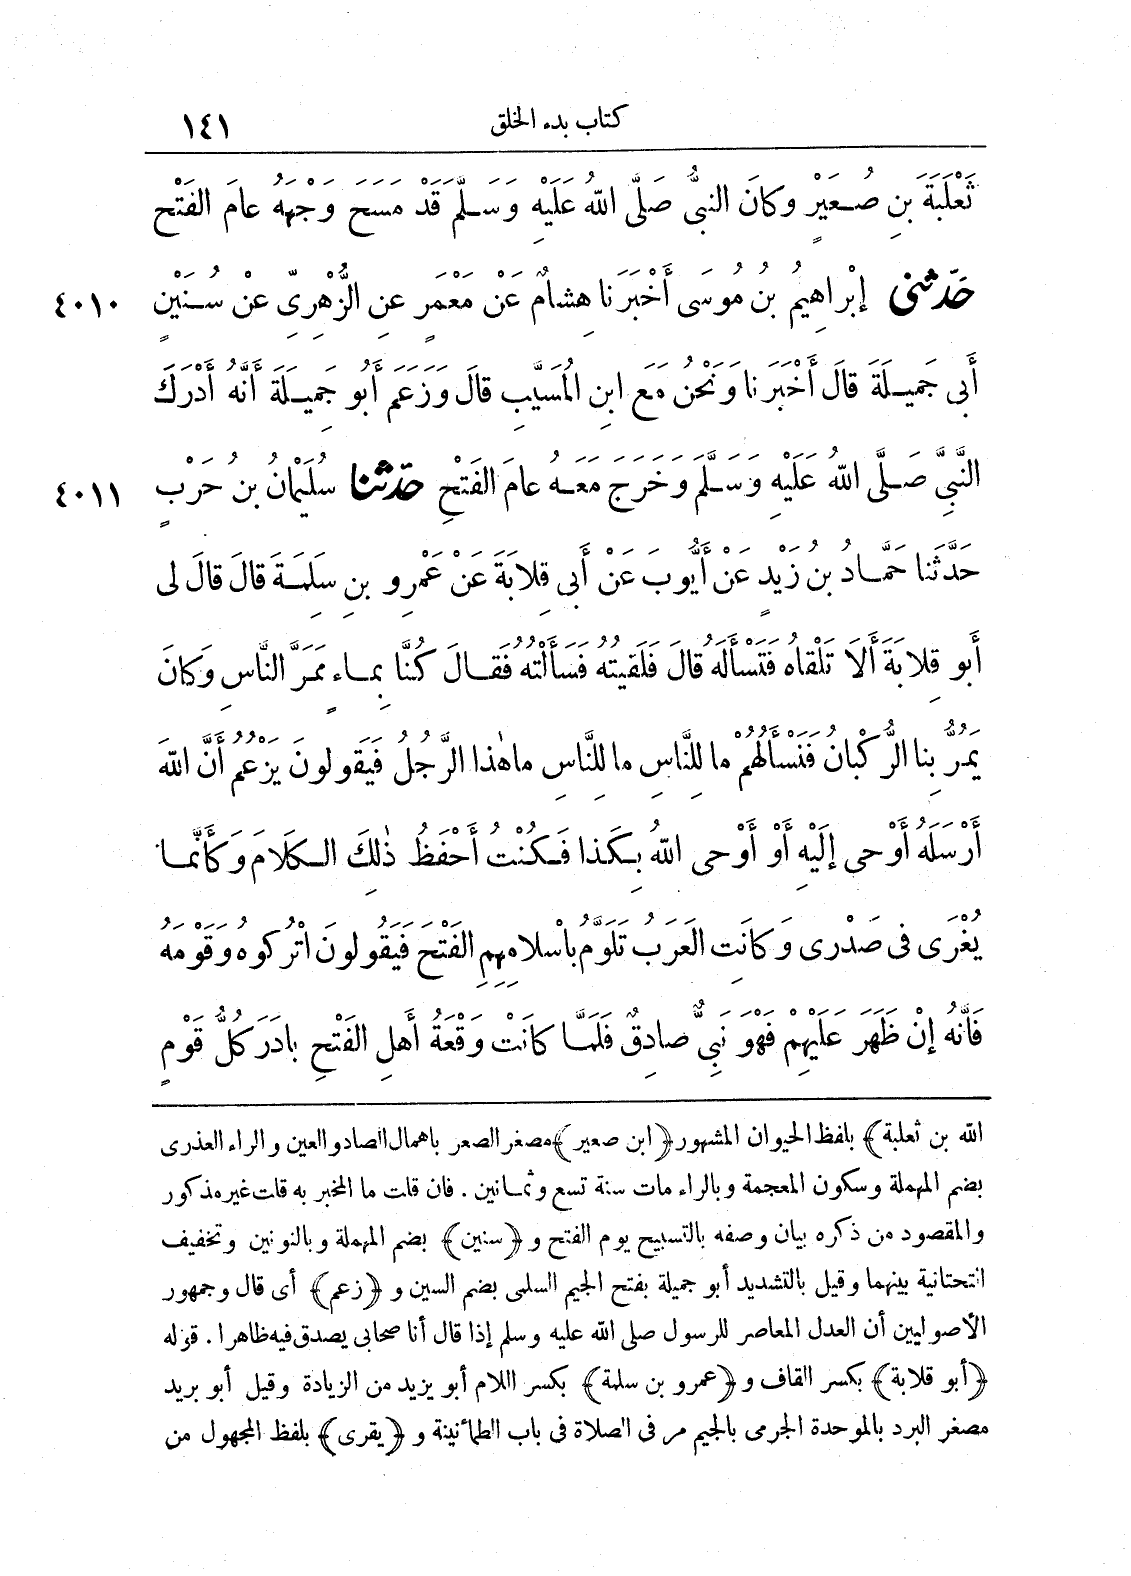 كتاب بدء الخلق ١٤١
ثَعْلَبَةَ بنِ صُعَيْرٍ وكانَ النبيُّ صَلَّى اللهُ عَلَيْهِ وَسَلَّمَ قَدْ مَسَحَ وَجْهَهُ عامَ الفَتْحِ
حَدّثنى إبْراهِيمُ بنُ مُوسَى أَخْبَرَنا هِشامٌ عَنْ مَعْمَرٍ عنِ الزُّهْرِىِّ عنْ سُنَيْنٍ ٤٠١٠
أَبى جَمِيلَةَ قالَ أَخْبَرَنا وَنَحْنُ مَعَ ابنِ المُسَيَّبِ قالَ وَزَعَمَ أَبُو جَمِيلَةَ أَنَّهُ أَدْرَكَ
النَّبِىَّ صَلَّى اللهُ عَلَيْهِ وَسَلَّمَ وَخَرَجَ مَعَهُ عامَ الفَتْحِ حدّثنا سُلَيْمانُ بنُ حَرْبٍ ٤٠١١
حَدَّثَنا حَمَّادُ بنُ زَيْدٍ عَنْ أَيُّوبَ عَنْ أَبى قِلابَةَ عَنْ عَمْرِو بنِ سَلِمَةَ قالَ قالَ لى
أَبو قِلابَةَ أَلَا تَلْقاهُ فَتَسْأَلَهُ قالَ فَلَقِيتُهُ فَسَأَلْتُهُ فَقالَ كُنَّا بِماءٍ مَمَرَّ النَّاسِ وَكانَ
يَمُرُّ بِنا الرُّكْبانُ فَنَسْأَلُهُمْ ما لِلنَّاسِ ما لِلنَّاسِ ماهٰذا الرَّجُلُ فَيَقولونَ يَزْعُمُ أَنَّ اللهَ
أَرْسَلَهُ أَوْحى إلَيْهِ أَوْ أَوْحى اللهُ بِكَذا فَكُنْتُ أَحْفَظُ ذٰلِكَ الكَلامَ وَكَأَنَّما
يُغْرَى فى صَدْرى وَكانَتِ العَرَبُ تَلَوَّمُ بِأَسْلامِهِمِ الفَتْحَ فَيَقُولونَ اتْرُكوهُ وَقَوْمَهُ
فَانَّهُ إنْ ظَهَرَ عَلَيْهِمْ فَهْوَ نَبِىٌّ صادِقٌ فَلَمَّا كانَتْ وَقْعَةُ أَهلِ الفَتْحِ بادَرَ كلُّ قَوْمٍ
الله بن ثعلبة﴾ بلفظ الحيوان المشهور ﴿ابن صعير﴾ مصغر الصعر باهمال الصاد والعين والراء العذرى
بضم المهملة وسكون المعجمة وبالراء مات سنة تسع وثمانين . فان قلت ما المخبر به قلت غير مذكور
والمقصود من ذكره بيان وصفه بالتسبيح يوم الفتح و ﴿سنين﴾ بضم المهملة وبالنونين وتخفيف
التحتانية بينهما وقيل بالتشديد أبو جميلة بفتح الجيم السلمى بضم السين و ﴿زعم﴾ أى قال وجمهور
الأصوليين أن العدل المعاصر للرسول صلى الله عليه وسلم إذا قال أنا صحابى يصدق فيه ظاهرا . قوله
﴿أبو قلابة﴾ بكسر القاف و ﴿عمرو بن سلمة﴾ بكسر اللام أبو يزيد من الزيادة وقيل أبو بريد
مصغر البرد بالموحدة الجرمى بالجيم مر فى الصلاة فى باب الطمأنينة و ﴿يقرى﴾ بلفظ المجهول من